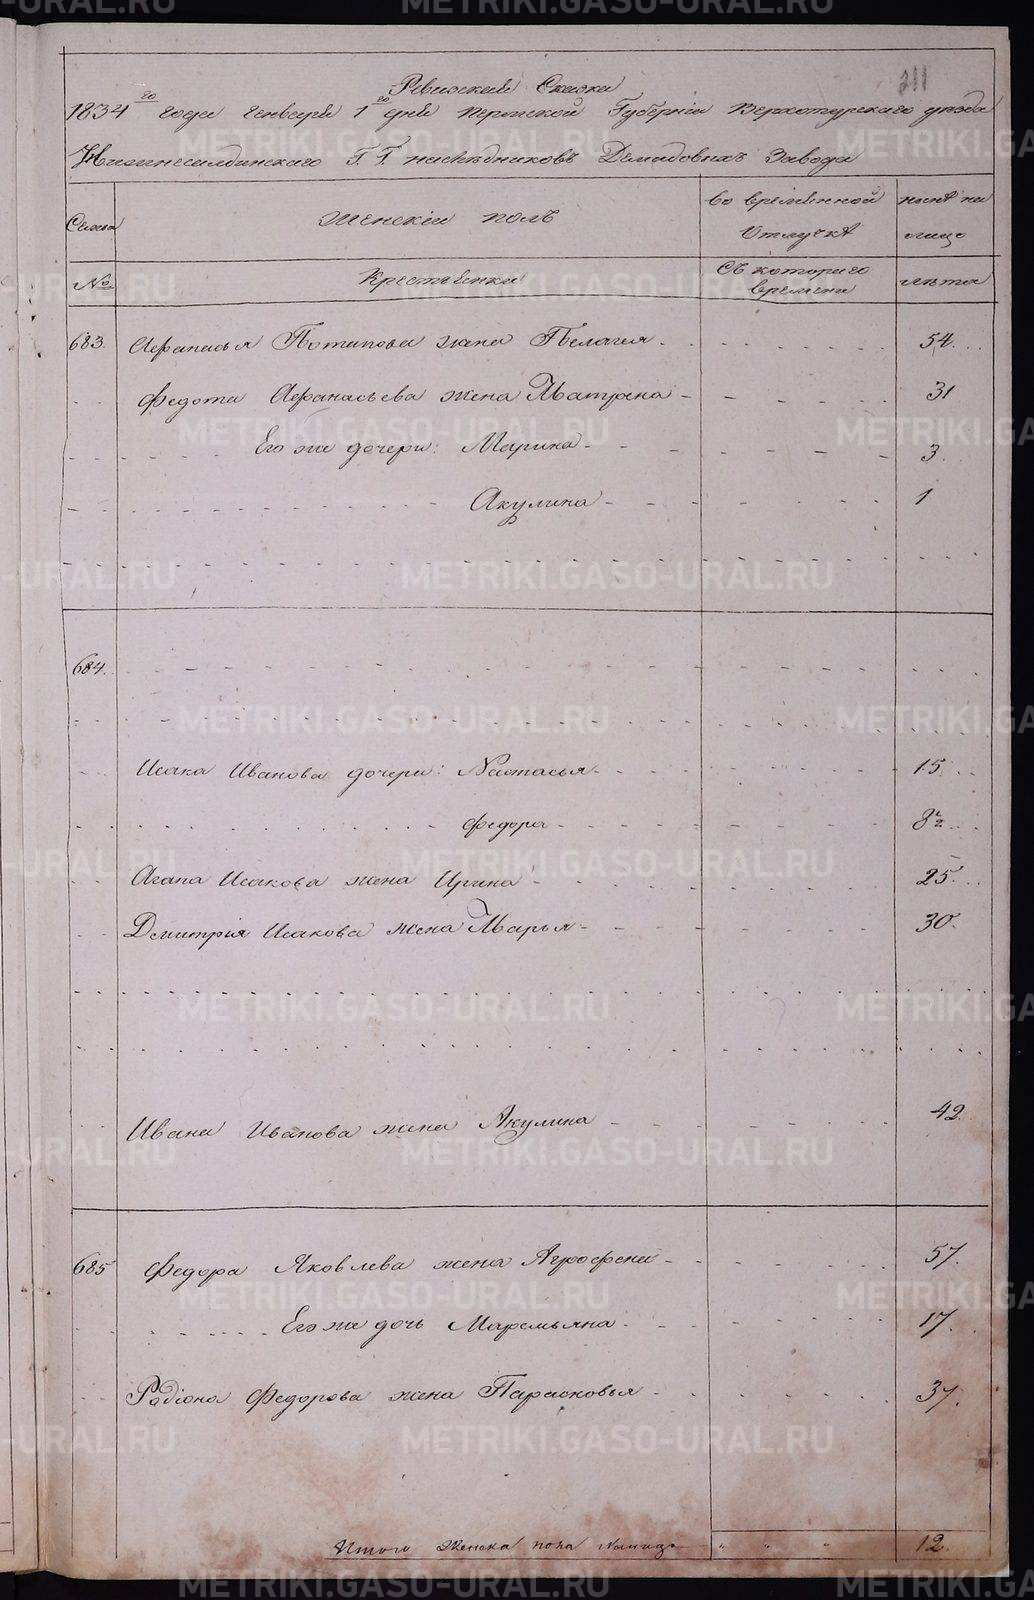 311
Ревизская Сказка
1834го года Генваря 1го дня Пермской Губерніи Верхотурскаго уезда
Нижнесалдинскаго Г. Г. наследниковъ Демидовыхъ Завода
Семьи Женскій полъ во временной отлучкѣ ныне на лицо
№ Крестьянки Съ котораго времени лета
683 Афанасья Потапова жена Пелагея 54
Федота Афанасьева жена Матрена 31
Его же дочери: Марина 3
Акулина 1
684
Исака Иванова дочери: Настасья 15
Федора 8½
Агапа Исакова жена Ирина 25
Дмитрія Исакова жена Марья 30
Ивана Иванова жена Акулина 42
685 Федора Яковлева жена Агрофена 57
Его же дочь Маремьяна 17
Радіона Федорова жена Парасковья 37
Итого женска пола налицо " " " 12
METRIKI.GASO-URAL.RU